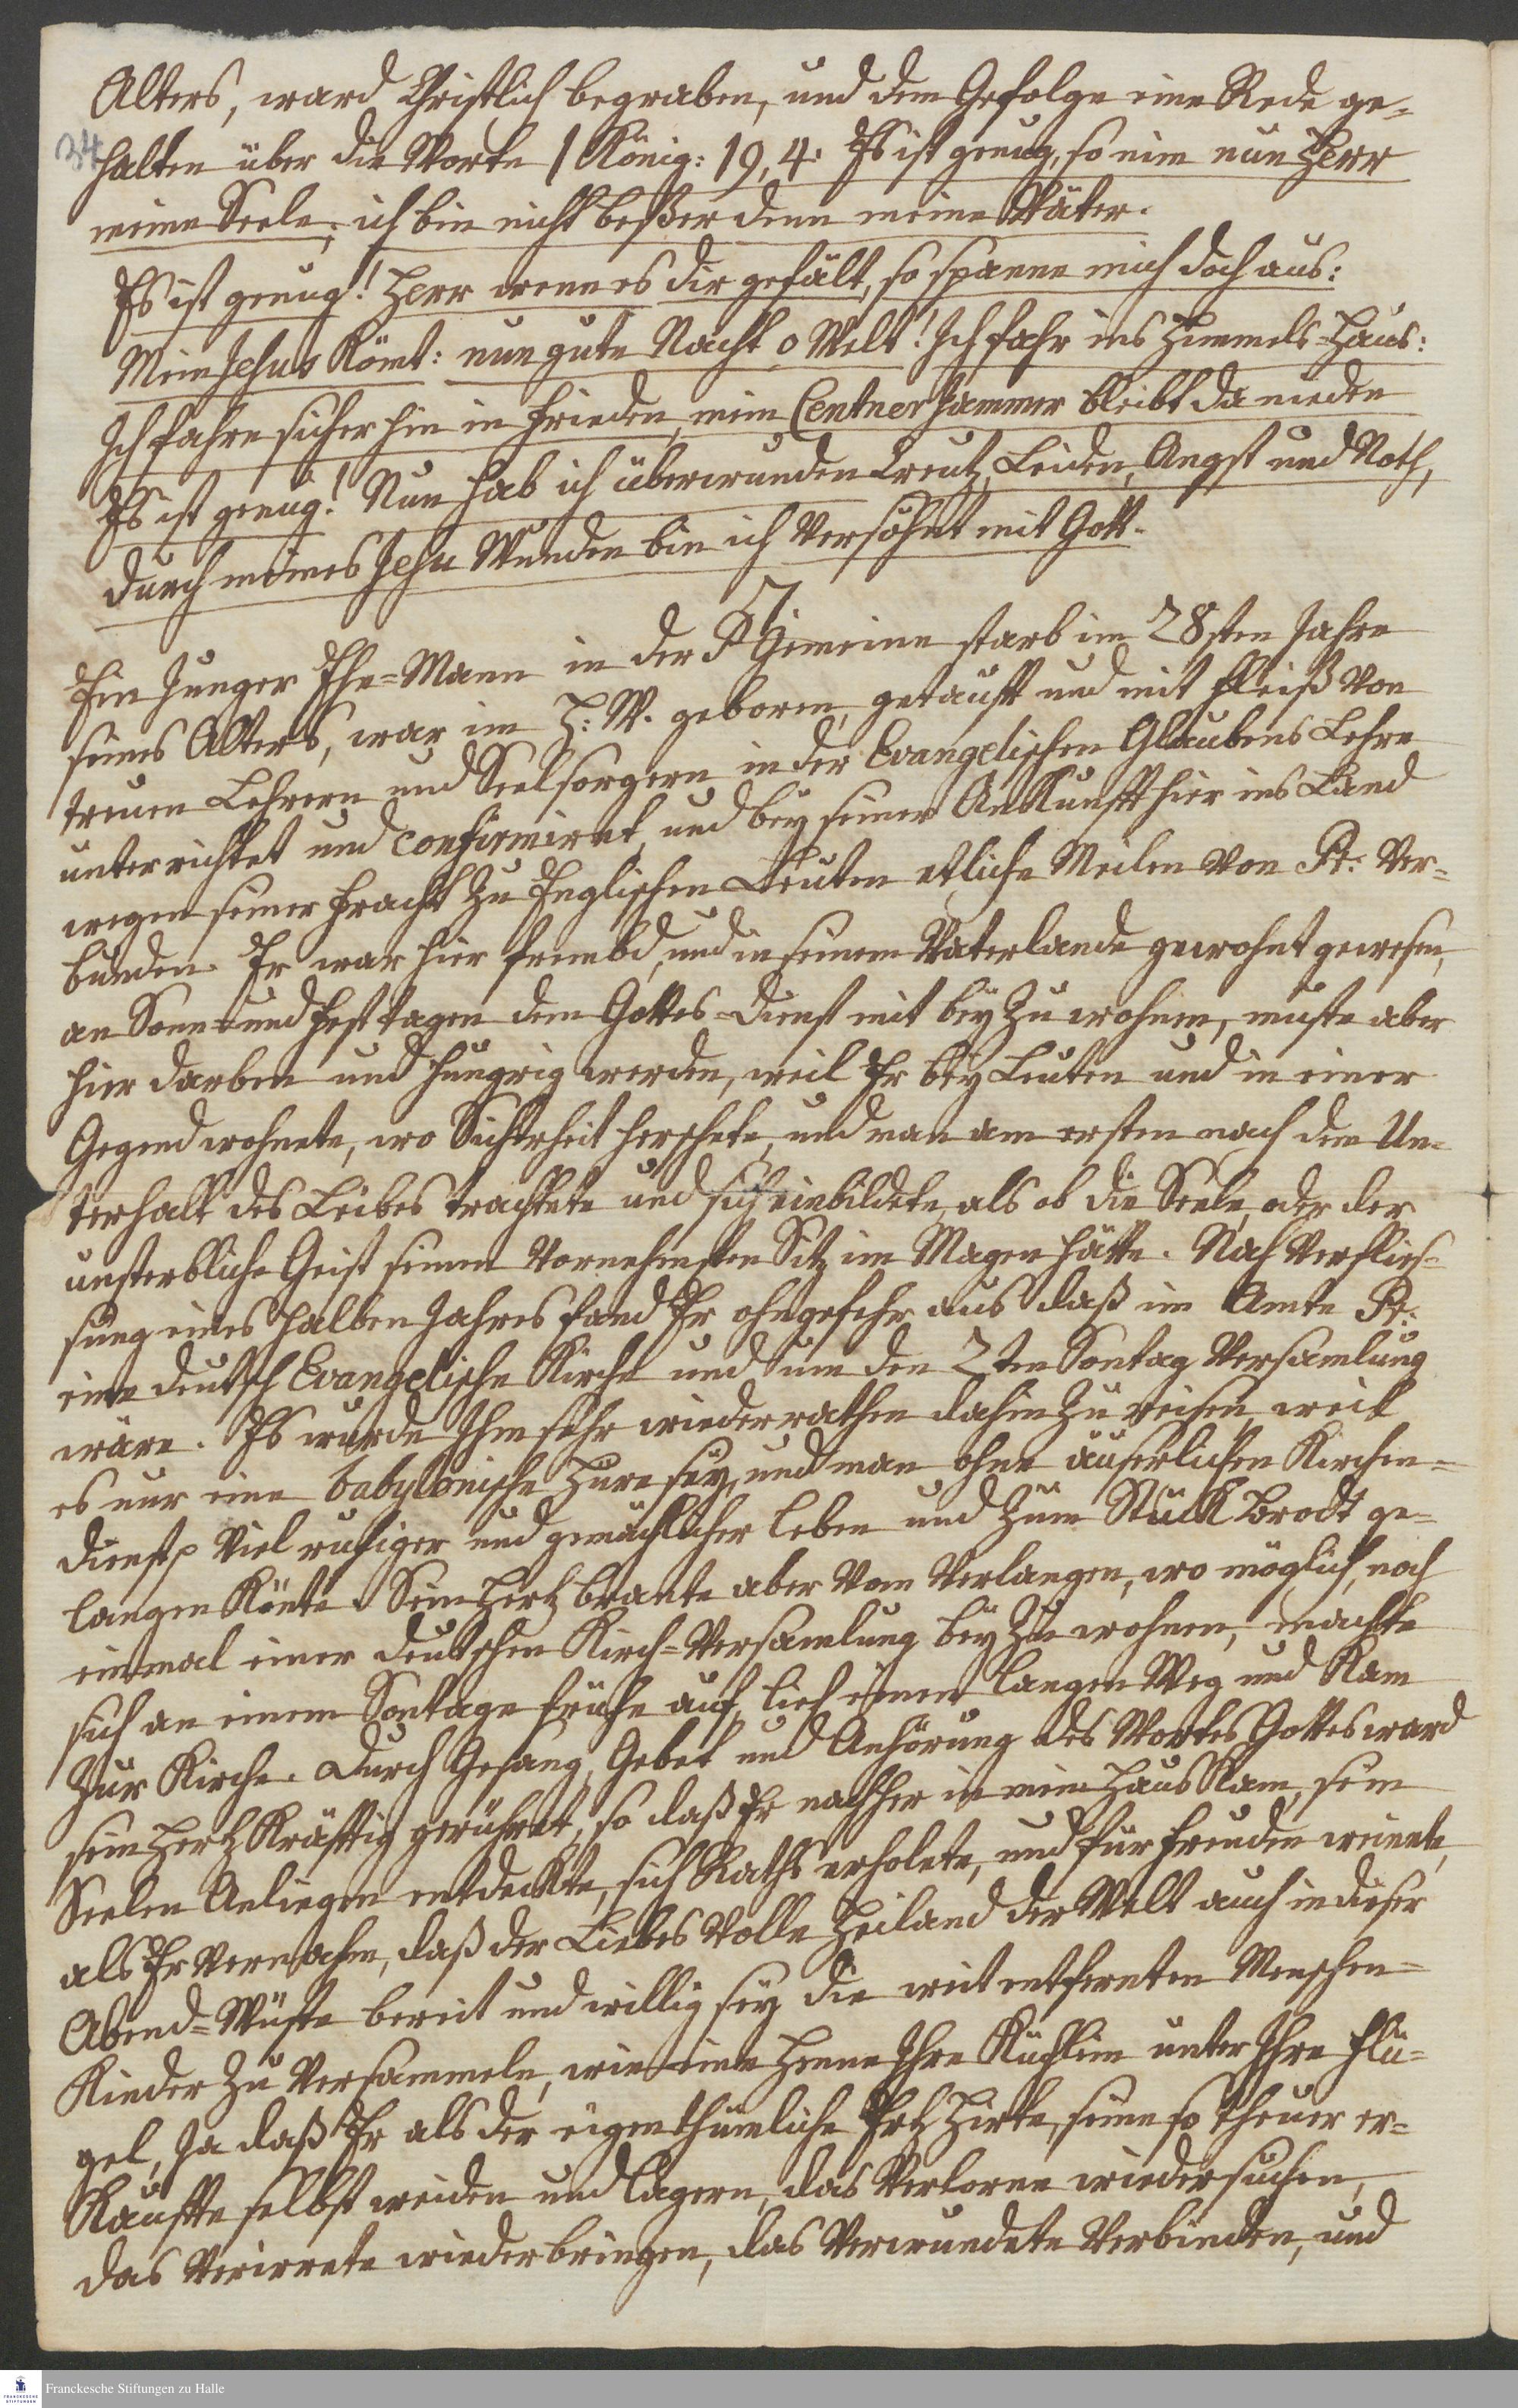 Alters, ward Christlich begraben, und dem Gefolge eine Rede ge-
34
halten über die Worte 1 König: 19, 4. Es ist genug, so nim nun Herr
meine Seele, ich bin nicht beßer denn meine Väter.
Es ist genug! Herr wenn es dir gefält, so spanne mich doch aus:
Mein Jesus Kömt: nun gute Nacht o Welt! Ich fahr ins Himmels-Haus:
Ich fahre sicher hin in Frieden, mein Centner Jammer bleibt da nieden
Es ist genug! Nun hab ich überwunden Creutz, Leiden, Angst und Noth,
durch meines Jesu Wunden bin ich Versöhnt mit Gott.
7.
Ein Junger Ehe-Mann in der Gemeine starb im 28sten Jahre
seines Alters, war im H: W. geboren, getauft und mit Fleiß von
treuen Lehrern und Seelsorgern in der Evangelischen Glaubens Lehre
unterrichtet und confirmiret, und bey seiner Ankunfft hier ins Land
wegen seiner Fracht zu Englischen Leuten etliche Meilen von Pr: Ver-
bunden. Er war hier frembd, und in seinem Vaterlande gewohnt gewesen,
an Sonn- und Festtagen dem Gottes-Dienst mit bey zu wohnen, muste aber
hier darben und hungrig werden, weil Er bey Leuten und in einer
Gegend wohnete, wo Sicherheit herschete, und man am ersten nach dem Un-
terhalt des Leibes trachtete und sich einbildete, als ob die Seele oder der
unsterbliche Geist seinen Vornehmsten Sitz im Magen hätte. Nach Verflies-
sung eines halben Jahres fand Er ohngefehr aus daß im Amte Pr:
eine deutsch Evangelische Kirche und um den 2ten Sontag Versamlung
wäre. Es wurde Ihm sehr wiederrathen dahin zu reisen, weil
es nur eine babylonische Hure sey, und man ohne äuserlichen Kirchen-
dienst Viel ruhiger und gemächlicher leben und zum Stück Brodt ge-
langen Könte. Sein Hertz brante aber Vom Verlangen, wo möglich, noch
einmal einer deutschen Kirch-Versamlung bey zu wohnen, machte
sich an einem Sontage frühe auf, lief einen langen Weg und Kam
zur Kirche. Durch Gesang, Gebet und Anhörung des Wortes Gottes ward
sein Hertz Kräfftig gerühret, so daß Er nachher in mein Haus Kam, sein
Seelen Anliegen entdeckte, sich Raths erholete, und für Freuden weinete,
als Er Vernahm, daß der Liebes Volle Heiland der Welt auch in dieser
Abend-Wüste bereit und willig sey die weit entfernten Menschen-
Kinder zu Versammeln, wie eine Henne Ihre Küchlein unter Ihre Flü-
gel, Ja daß Er als der eigenthümliche Ertz Hirte, seine so theuer er-
Kauffte selbst weiden und lagern, das Verlorne wiedersuchen,
das Verirrete wiederbringen, das Verwundete Verbinden, und
Franckesche Stiftungen zu Halle